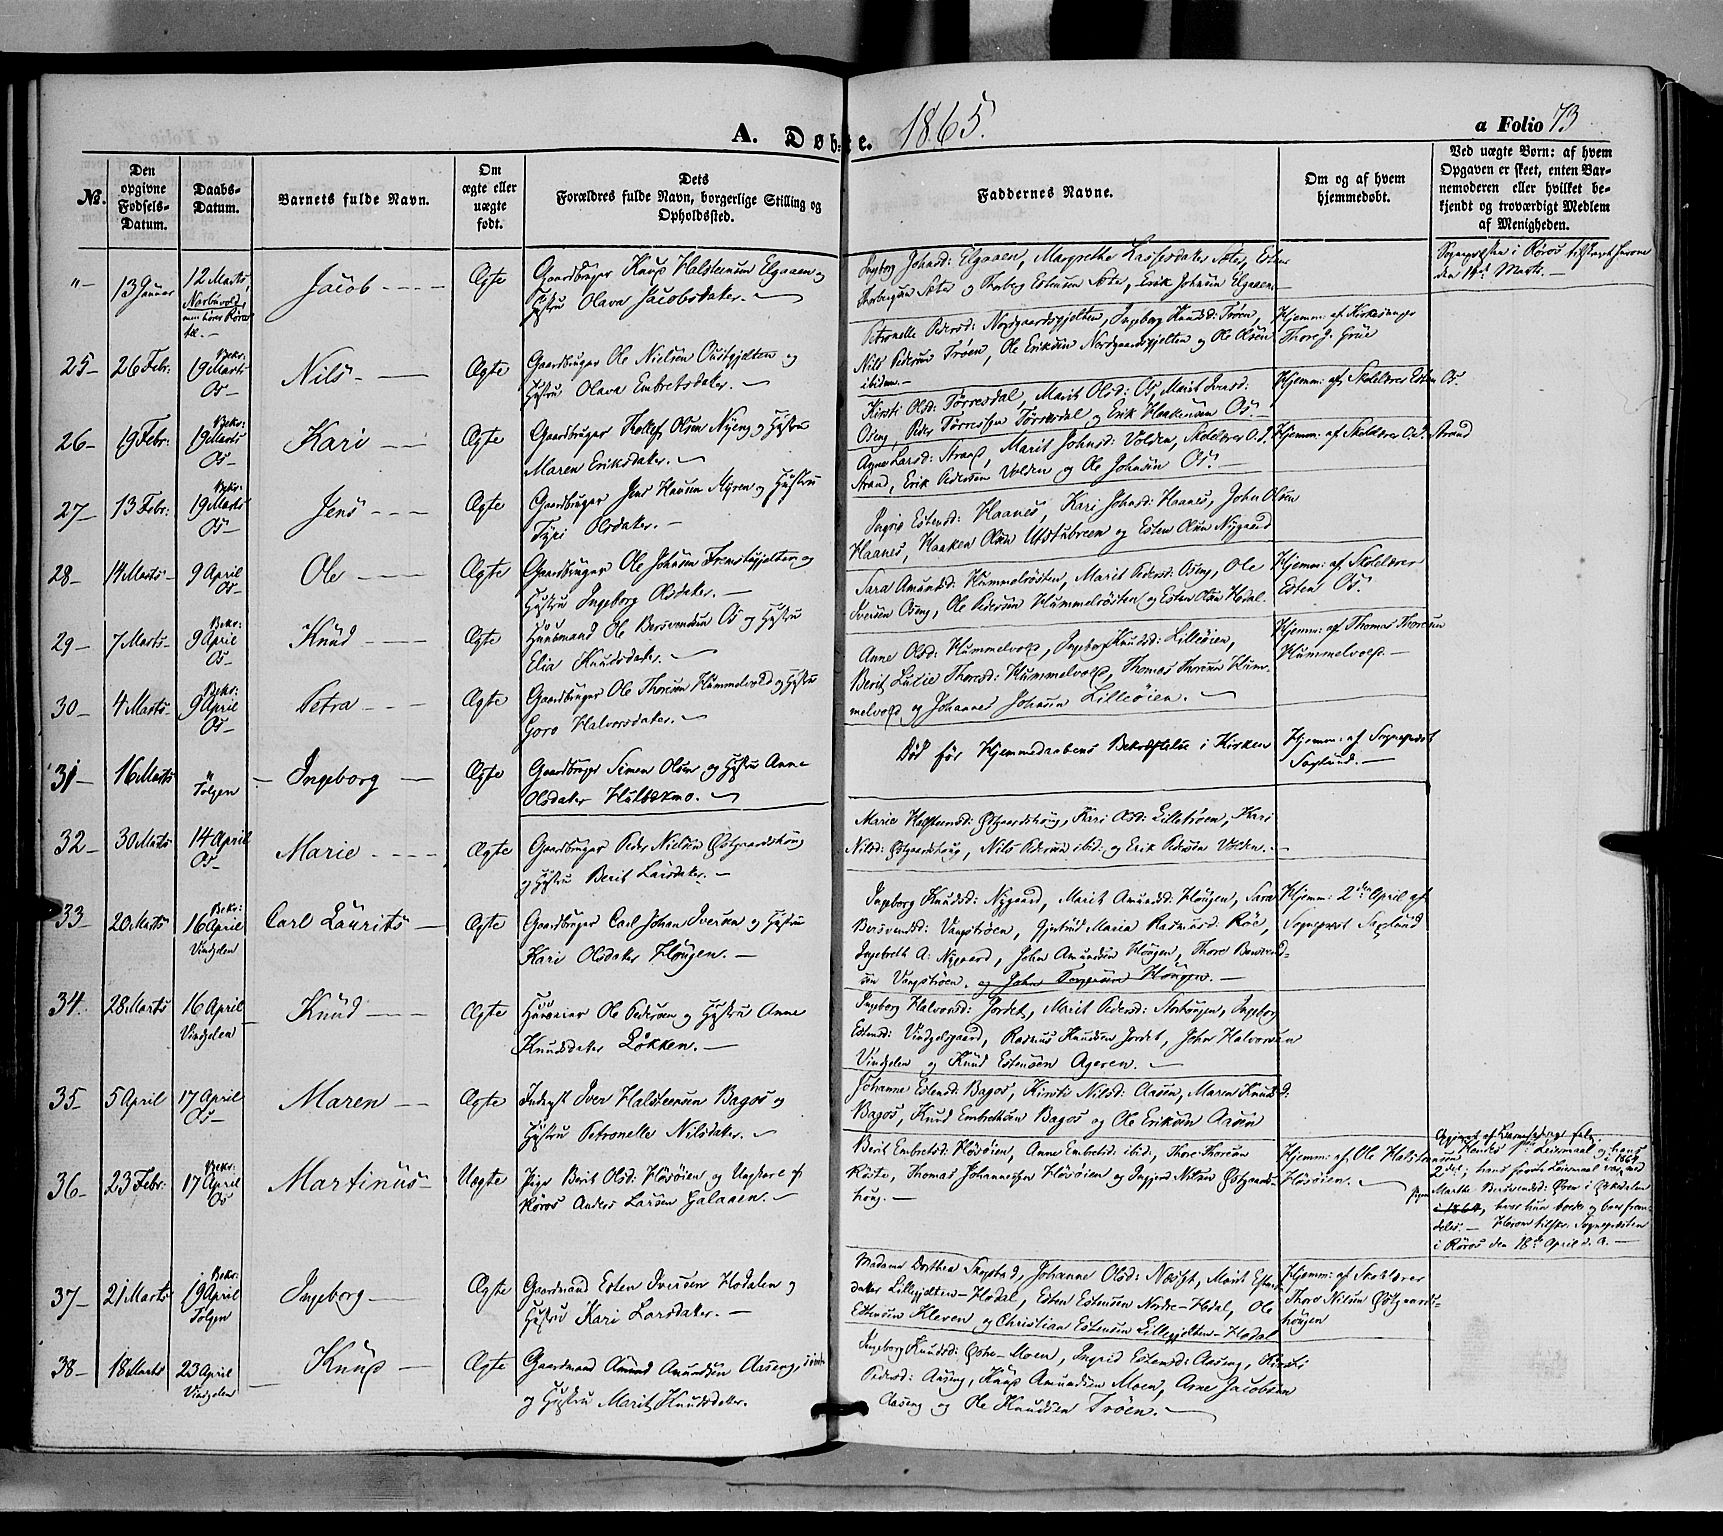 A. Døbte. 1865.
a Folio 73
No.
Den opgivne Fødsels-Datum.
Daabs-Datum.
Barnets fulde Navn.
Om ægte eller uægte født.
Dets Forældres fulde Navn, borgerlige Stilling og Opholdssted.
Faddernes Navne.
Om og af hvem hjemmedøbt.
Ved uægte Børn: af hvem
Opgaven er skeet, enten Bar-
nemoderen eller hvilket be-
kjendt og troværdigt Medlem
af Menigheden.
"- 13 Januar 12 Marts, Jacob Ægte Gaardbruger Knud Halsteensen Elgaaen og
Hustru Olava Jacobsdatter.
Ingeborg Johnsd: Elgaaen, Margrethe
Sognepræsten i Røros
den 14de Marts.
25- 26 Febr: Bekr: 19 Marts Os Nils Ægte Gaardbruger Ole Nielsen Oustgjelten og
Hustru Olava Embretsdatter.
Petronelle Pedersd: Nordgaardsgjelten, Ingeborg Knudsd: Trøen,
Nils Pedersen Trøen, Ole Eriksen Nordgaardsgjelten og Ole Olsen
ibidem.
Hjemm: af Kirkesanger
Thore J. Grue
26- 19 Febr: Bekr: 19 Marts Os Kari Ægte Gaardbruger Olsen Nyeng og Hustru
Maren Eriksdatter.
Kirsti Olsd: Tørresdal, Marit Olsd: Os, Marit Iversd:
Oseng, Peder Tørresen Tørresdal og Erik Haakensen Os.
Hjemm: af Skolelærer Esten Os.
27- 13 Febr: Bekr: 19 Marts Os Jens Ægte Gaardbruger Jens Hansen Myren og Hustru
Olsdatter.
Agne Larsd: Strand, Marit Johnsd: Volden, Skolelærer O. J.
Strand, Erik Pedersen Volden og Ole Johnsen Os.
Hjemm: af Skolelærer O. J. Strand
28- 14 Marts 9 April Os Ole Ægte Gaardbruger Ole Johnsen Fremstgjelten og
Hustru Ingeborg Olsdatter.
Ingrid Estensd: Haanes, Kari Johnsd: Haanes, John Olsen
Haanes, Haaken Olsen Utstubroen og Esten Olsen Nygaard
29- 7 Marts Bekr: 9 April Os Knud Ægte Huusmand Ole Bersvendsen Os og Hustru
Elia Knudsdatter.
Sara Amundsd: Hummelrösten, Marit Pedersd: Oseng, Ole
Iversen Oseng, Ole Pedersen Hummelrösten og Esten Olsen Hodal.
Hjemm: af Skolelærer
Esten Os.
30- 4 Marts Bekr: 9 April Os Petra Ægte Gaardbruger Ole Thoresen Hummelvold og Hustru
Goro Halvorsdatter.
Anne Olsd: Hummelvold, Ingeborg Knudsd: Lilleöien,
Berit Lutie Thoresd: Hummelvold, Thomas Thoresen Hum-
melvold og Johannes Johnsen Lilleöien.
Hjemm: af Thomas Thoresen
Hummelvold.
31- 16 Marts " Tolgen Ingeborg Ægte Gaardbruger Simen Olsen og Hustru Anne
Olsdatter Hulbækmo.
Död før Hjemmedaabens Bekræftelse i Kirken
Hjemm: af Sognepræst
Saxlund.
32- 30 Marts 14 April Os Marie Ægte Gaardbruger Peder Nielsen Østgaardshoug
og Hustru Berit Larsdatter.
Marie Østgaardshoug, Kari Olsd: Lilletröen, Kari
Nilsd: Østgaardshoug, Nils Pedersen ibid: og Erik Pedersen Volden.
33- 20 Marts Bekr: 16 April Vingelen Carl Laurits Ægte Gaardbruger Carl Johan Iversen og Hustru
Kari Olsdatter Hougen.
Ingeborg Knudsd: Nygaard, Marit Amundsd: Hougen, Sara
Bersvendsd: Vangströen, Gjertrud Maria Rasmusd: Röe,
Ingebreth A: Nygaard, John Amundsen Hougen, Thore Bersvend-
sen Vangströen. og John Hougen.
Hjemm: 2den April af
Sognepræst Saxlund
34. 28 Marts 16 April Vingelen Knud Ægte Ole Pedersen og Hustru Anne
Knudsdatter Løkken.
Ingeborg Halvorsd: Jordet, Marit Pedersd: Storhougen, Ingeborg
Estensd: Vingelsgaard, Rasmus Knudsen Jordet, John Halvorsen
Vingelen og Knud Estensen Ageren.
35- 5 April 17 April Os Maren Ægte Inderst Iver Halsteensen Bagos og
Hustru Petronelle Nilsdatter.
Johanne Estensd: Bagos, Kirsti Nilsd: Aasen, Maren Knudsd:
Bagos, Knud Embretsen Bagos og Ole Eriksen Aasen
36- 23 Febr: Bekr: 17 April Os Martinus Uægte Pige Berit Olsd: Horöien og Ungkarl af
Röros Anders Larsen Galaaen.
Berit Embretsd: Horöien, Anne Embretsd: ibid., Thore Thoresen
Röste, Thomas Johannesen Horöien og Ingjer Nilsen Østgaards-
houg.
Hjemm: af Ole Halstensen
Horöien.
Opgivet af Barnefader
Hendes 1ste Leiermaal og hans
2det; hans første Leiermaal var med
Pigen Marthe Bersvendsd: Øren i Ørkedalen
i 1864, hvor hun boede og boer frem-
deles. Herom tilskr: Sognepræsten
i Röros den 18de April d. A.
37- 21 Marts Bekr: 19 April Tolgen Ingeborg Ægte Gaardmand Esten Iversen Hodalen og
Hustru Kari Larsdatter.
Madame Dorthea Skogstad, Johanne Olsd: Marit Estens-
datter Lillegjelten-Hodal, Esten Estensen Nordre-Hodal, Ole
Estensen Kleven og Christian Estensen Lillegjelten-Hodal
Hjemm: af Skolelærer
Thore Nilsen Østgaards-
hougen
38- 18 Marts 23 April Vingelen Knud Ægte Gaardmand Amund Amundsen Aaseng,
og Hustru Marit Knudsdatter.
Ingeborg Knudsd: Østre-Moen, Ingrid Estensd: Aaseng, Kirsti
Pedersd: Aaseng, Knud Amundsen Moen, Arne Jacobsen
Aaseng og Ole Knudsen Trøen.